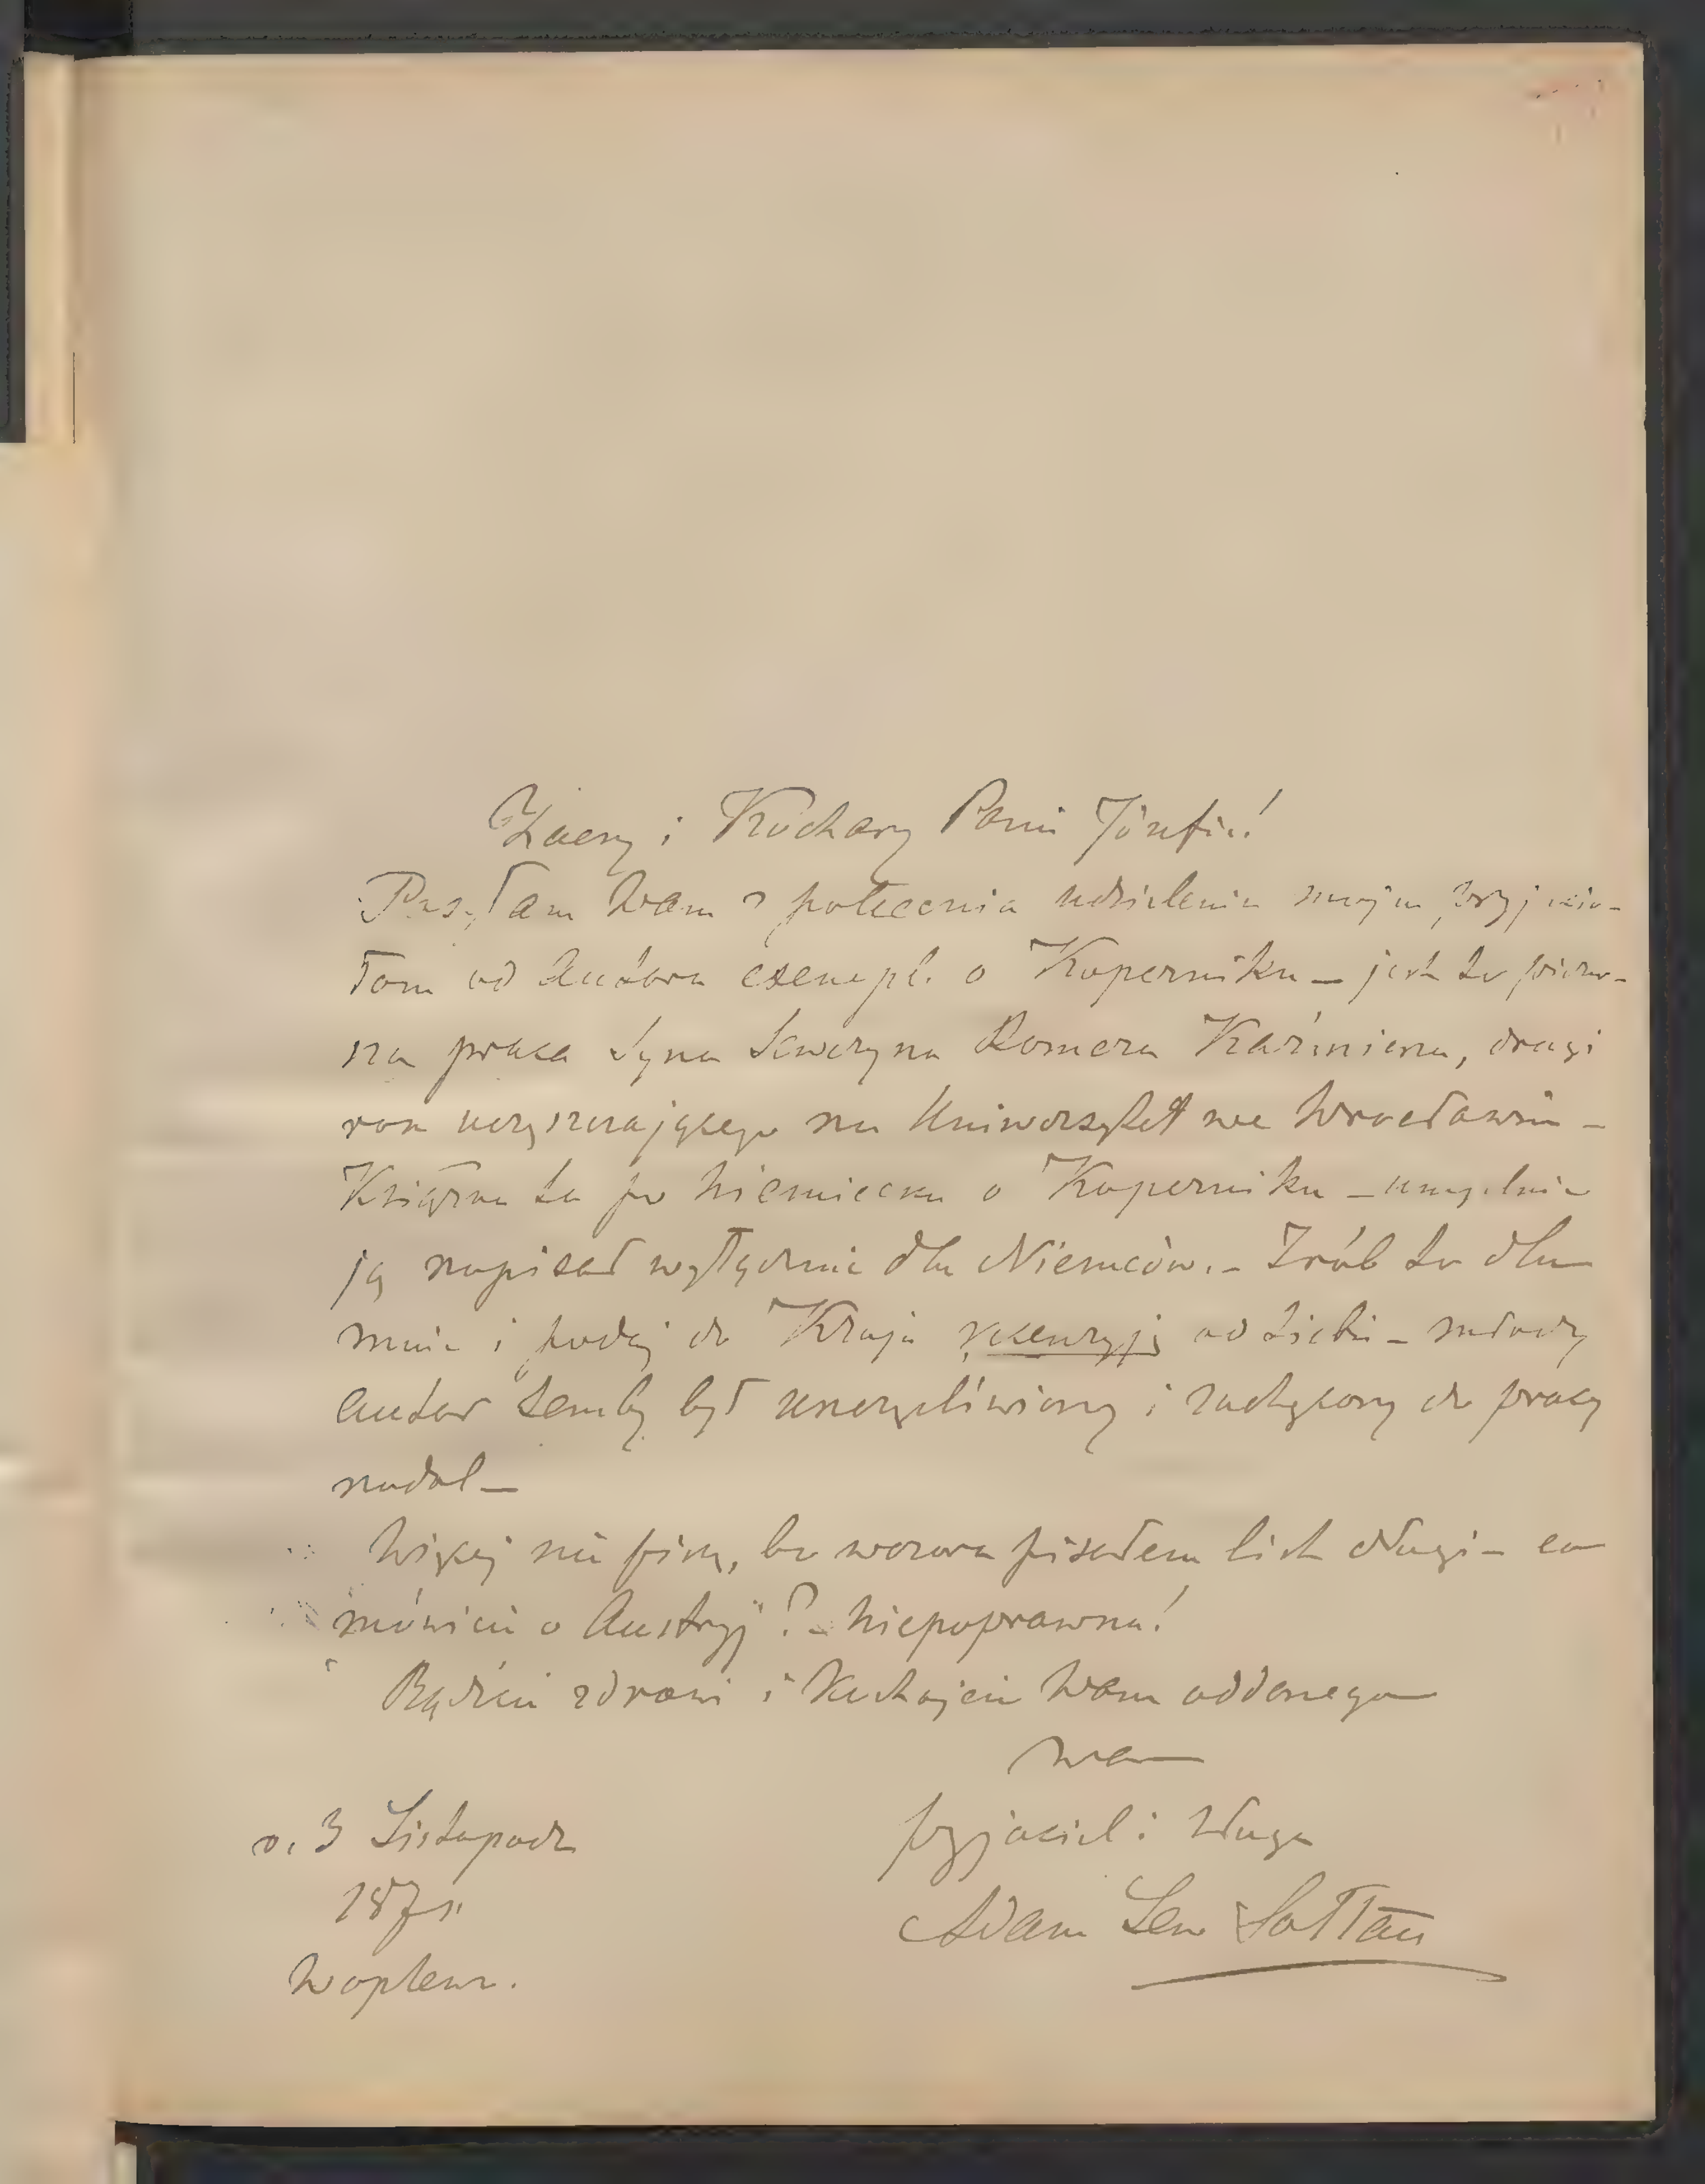 Zacny i Kochany Panie Józefie!
Posyłam Wam z polecenia udzielenia swoim przyjacio-
łom od Autora exempl. o Koperniku – jest to pierw-
sza praca Syna Seweryna Romera Kaźmierza, drugi
rok uczęszczającego na Uniwersytet we Wrocławiu –
Książka ta po Niemiecku o Koperniku – umyślnie
ją napisał wyłącznie dla Niemców. – Zrób to dla
mnie i podaj do Kraju recenzyję od siebie – młody
autor temby był uszczęśliwiony i zachęcony do pracy
nadal –
Więcej nie piszę, bo wczora pisałem list długi – co
mówicie o Austryj? – Niepoprawna!
Bądźcie zdrowi i Kochajcie Wam oddanego
przyjaciel i sługa
Adam Lew Sołtan
d. 3 Listopada